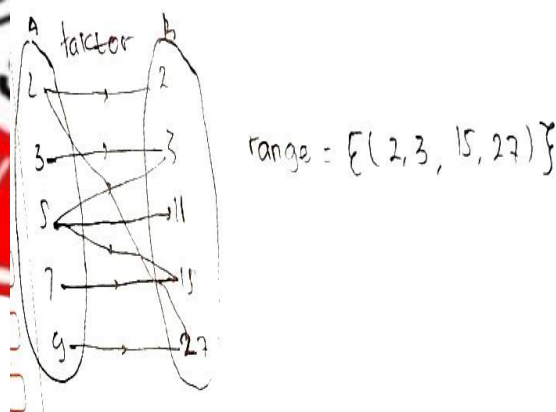 A faktor B
2 2
3 3
5 11
7 15
9 27
range = {(2,3, 15, 27)}